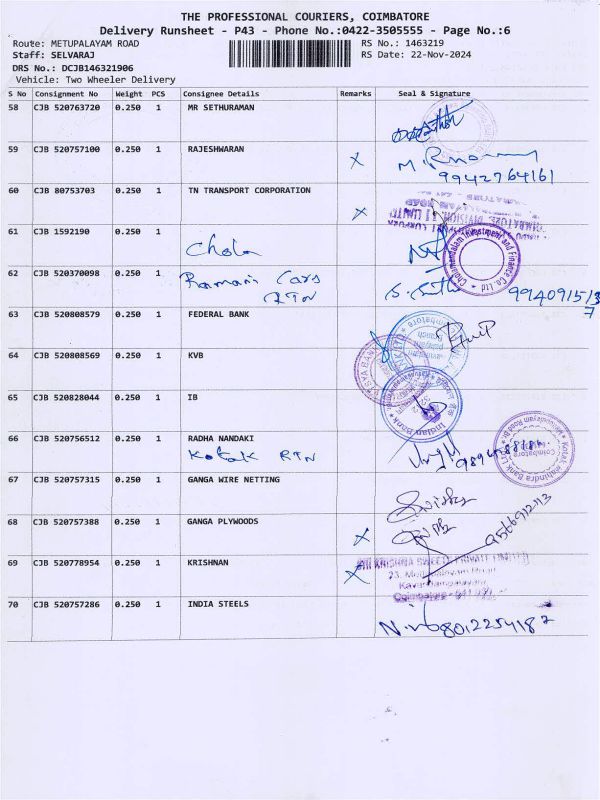 THE PROFESSIONAL COURIERS, COIMBATORE
Delivery Runsheet - P43 - Phone No.:0422-3505555 - Page No.:6
Route: METUPALAYAM ROAD RS No.: 1463219
Staff: SELVARAJ RS Date: 22-Nov-2024
DRS No.: DCJB146321906
Vehicle: Two Wheeler Delivery
S No Consignment No Weight PCS Consignee Details Remarks Seal & Signature
58 CJB 520763720 0.250 1 MR SETHURAMAN
59 CJB 520757100 0.250 1 RAJESHWARAN X
9942764161
60 CJB 80753703 0.250 1 TN TRANSPORT CORPORATION X
61 CJB 1592190 0.250 1 Chola
Cholamandalam Investment and Finance Co Ltd
62 CJB 520370098 0.250 1 Ramani Cars
RTN
63 CJB 520808579 0.250 1 FEDERAL BANK
64 CJB 520808569 0.250 1 KVB
65 CJB 520828044 0.250 1 IB
Indian Bank
66 CJB 520756512 0.250 1 RADHA NANDAKI
Kotak RTN
Kotak Mahindra Bank Ltd
Coimbatore
67 CJB 520757315 0.250 1 GANGA WIRE NETTING
68 CJB 520757388 0.250 1 GANGA PLYWOODS X
69 CJB 520778954 0.250 1 KRISHNAN X
KRISHNA SWEETS PRIVATE LIMITED
Coimbatore
70 CJB 520757286 0.250 1 INDIA STEELS
8012254187